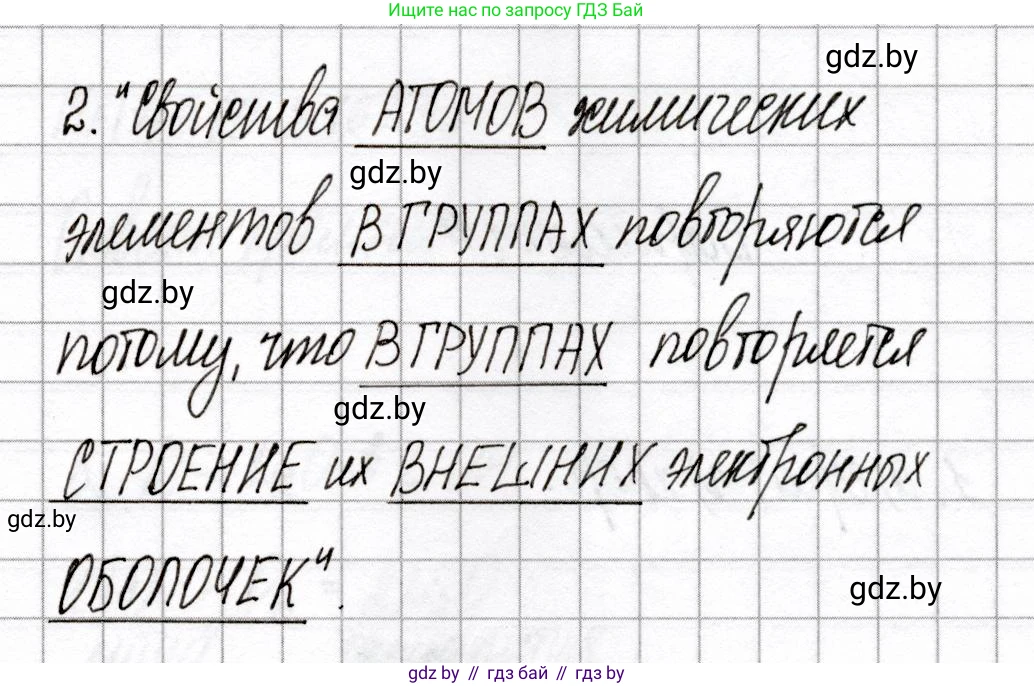 Ищите нас по запросу ГДЗ Бай
gdz.by
2. "Свойства АТОМОВ химических
gdz.by
элементов В ГРУППАХ повторяются
gdz.by
потому, что В ГРУППАХ повторяется
gdz.by
СТРОЕНИЕ их ВНЕШНИХ электронных
gdz.by
ОБОЛОЧЕК".
gdz.by
gdz by // гдз бай // гдз by